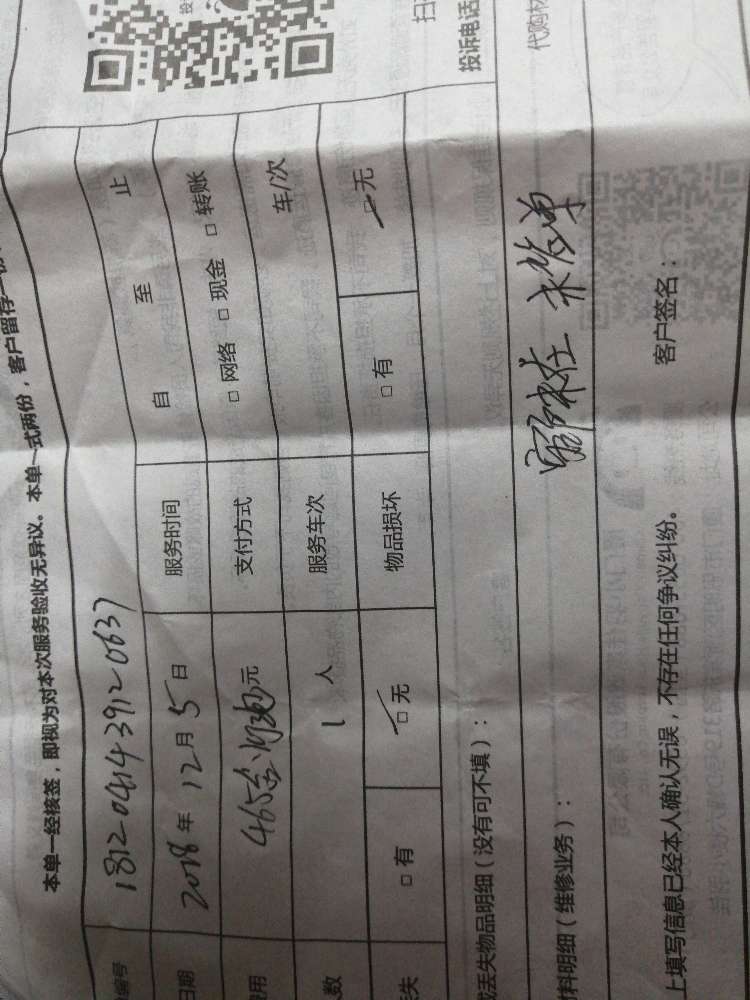 本单一经接签，即视为对本次服务验收无异议。本单一式两份，客户留存一份
编号 1812041439120637
日期 2018 年 12 月 5 日 服务时间 自 至 止
费用 465 元 支付方式 □ 网络 □ 现金 □ 转账
数 1 人 服务车次 车/次
失 □ 有 □ 无 物品损坏 □ 有 □ 无
或丢失物品明细（没有可不填）：
扫
投诉电话
料明细（维修业务）： 客户未在 未签单
代购材
上填写信息已经本人确认无误，不存在任何争议纠纷。 客户签名：